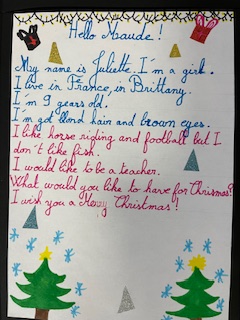 Hello Maude!
My name is Juliette. I'm a girl.
I live in France, in Brittany.
I'm 9 years old.
I'm got blond hair and brown eyes.
I like horse riding and football but I
don't like fish.
I would like to be a teacher.
What would you like to have for Chrismas?
I wish you a Merry Christmas!